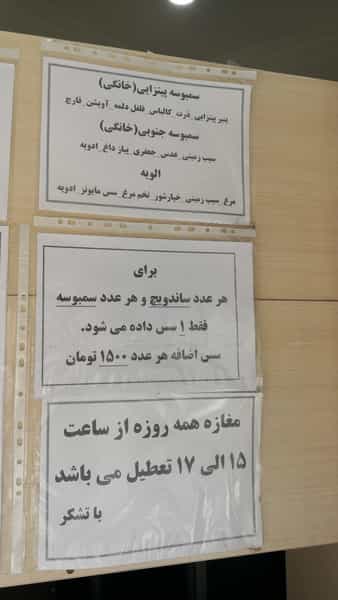 سمبوسه پیتزایی(خانگی)
پنیر پیتزایی_ذرت_کالباس_فلفل دلمه_آویشن_قارچ
سمبوسه جنوبی(خانگی)
سیب زمینی_عدس_جعفری_پیاز داغ_ادویه
الویه
مرغ_سیب زمینی_خیارشور_تخم مرغ_سس مایونز_ادویه
برای
هر عدد ساندویچ و هر عدد سمبوسه
فقط ۱ سس داده می شود.
سس اضافه هر عدد ۱۵۰۰ تومان
مغازه همه روزه از ساعت
۱۵ الی ۱۷ تعطیل می باشد
با تشکر